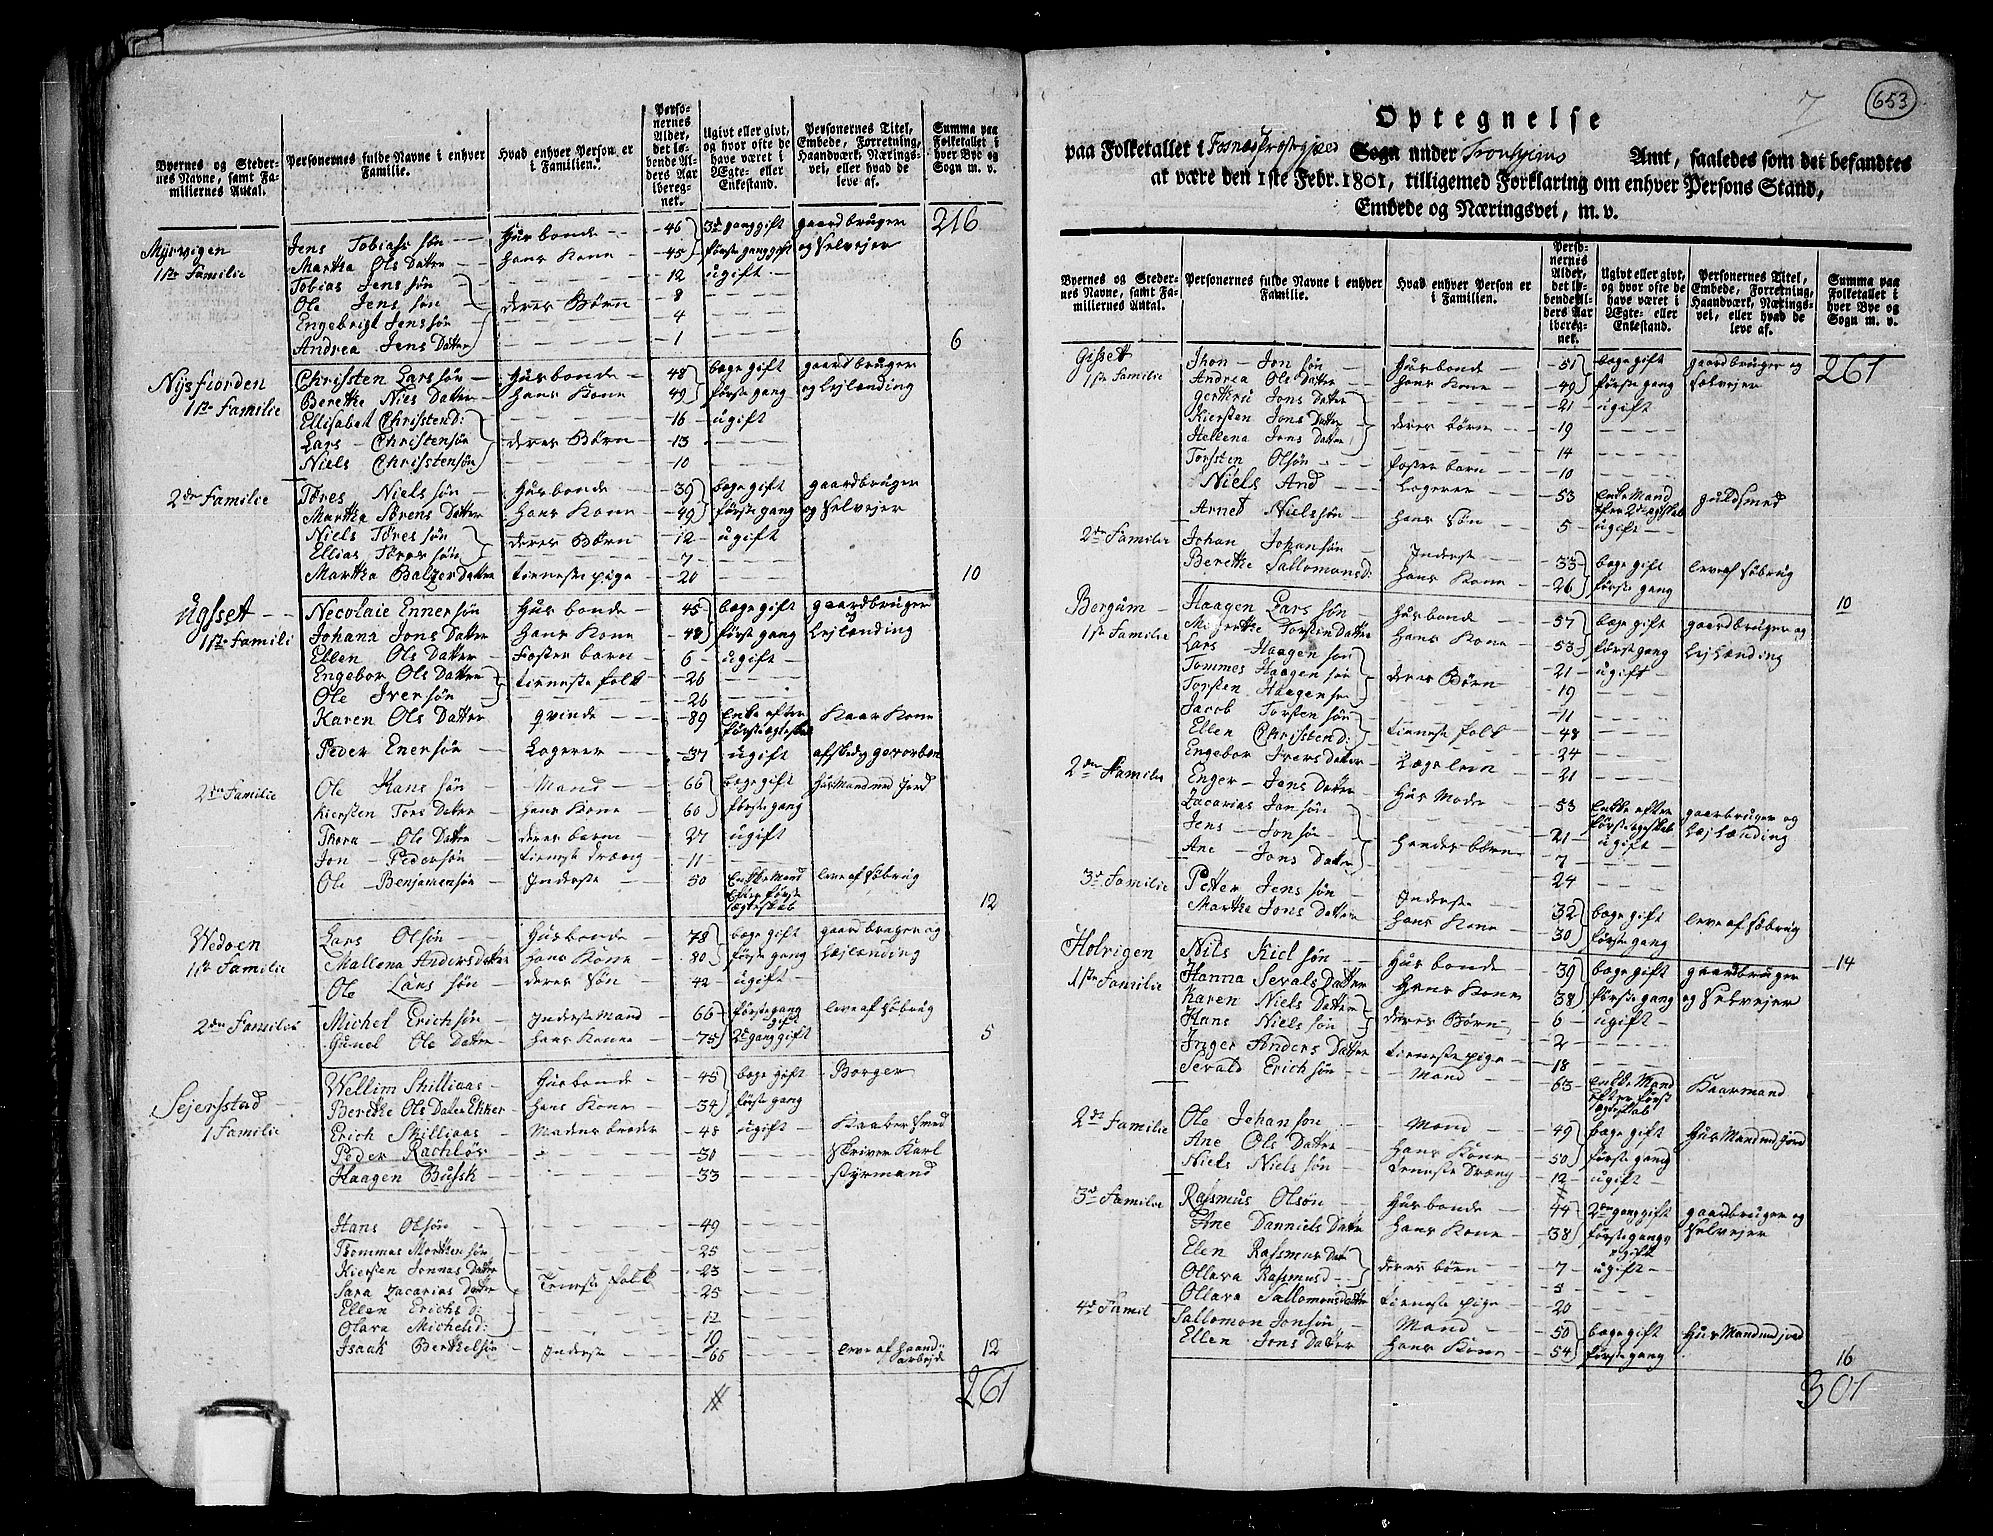 Byernes og Steder-
nes Navne, samt Fa-
miliernes Antal.
Personernes fulde Navne i enhver
Familie.
Hvad enhver Person er
i Familien.
Perso-
nernes
Alder,
det lø-
bende Al-
ders Aar
ibereg-
net.
Ugivt eller givt,
og hvor ofte de
have været i
Ægte- eller
Enkestand.
Personernes Titel,
Embede, Forretning,
Haandværk, Nærings-
vei, eller hvad de
leve af.
Summa paa
Folketallet i
hver Bye og
Sogn m. v.
216
Myrvigen Jens Tobiassøn Husbonde 46 3de gang gift gaardbruger
1ste Familie Martha Ols Datter hans Kone 45 første gang gift og selvejer
Tobias Jenssøn 12 ugift
Ole Jenssøn deres Børn 8
Engebrigt Jenssøn 4
Andrea Jens Datter 1 6
Nysfiorden Christen Larssøn Husbonde 48 bæge gift gaardbruger
1ste Familie Berethe Niels Datter hans Kone 49 første gang og Lejlænding
Ellisabet Christend: 16 ugift
Lars Christensøn deres Børn 13
Niels Christensøn 10
2den Familie Tøres Nielssøn Husbonde 39 bæge gift gaardbruger
Martha Sørens Datter hans Kone 49 første gang og selvejer
Niels Tøressøn deres Børn 12 ugift
Ellias Tøressøn 7
Martha Balzer Datter tieneste pige 20 10
Ugsset Necolaie Ennersøn Husbonde 45 bæge gift gaardbruger og
1ste Familie Johana Jons Datter hans Kone 48 første gang Lejlænding
Ellen Ols Datter Foster barn 6 ugift
Engebor Ols Datter tieneste folk 26
Ole Iversøn 26
Karen Ols Datter qvinde 89 Enke efter første ægteskab Kaar Kone
Peder Enersøn Logerer 37 ugift
2den Familie Ole Hanssøn Mand 66 bæge gift Husmand med jord
Kiersten Tors Datter hans Kone 60 første gang
Thora Ole Datter deres barn 27 ugift
Jon Pedersøn tieneste dræng 11
Ole Benjamensøn Inderste 50 Enke Mand Efter første ægteskab leve af søbrug 12
Wedøen Lars Olsøn Husbonde 78 bæge gift gaardbruger og
1ste Familie Mallena Andersdatter hans Kone 80 første gang Lejlænding
Ole Larssøn deres søn 42 ugift
2den Familie Michel Erichsøn Inderste Mand 66 første gang gift leve af søbrug
Gunel Ole Datter hans Konne 75 2de gang gift 5
Sejersstad Wellim Skilliaas Husbonde 45 bæge gift Borger
1 Familie Berethe Ols Datter Ekker hans Kone 34 første gang
Erich Skilliaas Mades broder 48 ugift Kaaber smed
Peder Rachløs 30 Skriver Karl
Haagen Bussk 33 styrmand
Hans Olsøn 49
Thommas Morthensøn 25
Kiersten Jonnas Datter 23
Sara Zacarias Datter Teneste folk 25
Ellen Erichs d: 12
Olara Michelsd: 19
Isaak Berthelsøn Inderste 66 leve af haand arbejde 12
261
653
7
Optegnelse
paa Folketallet i Fosnes Præstegield Sogn under Tronhjems Amt, saaledes som det befandtes
at være den 1ste Febr. 1801, tilligemed Forklaring om enhver Persons Stand,
Embede og Næringsvei, m. v.
Byernes og Steder-
nes Navne, samt Fa-
miliernes Antal.
Personernes fulde Navne i enhver
Familie.
Hvad enhver Person er
i Familien.
Perso-
nernes
Alder,
det lø-
bende Al-
ders Aar
iberegnet.
Ugivt eller givt,
og hvor ofte de
have været i
Ægte- eller
Enkestand.
Personernes Titel,
Embede, Forretning,
Haandværk, Nærings-
vei, eller hvad de
leve af.
Summa paa
Folketallet i
hver Bye og
Sogn m. v.
261
Gisset Jhon Jonsøn Husbonde 51 bæge gift gaardbruger og
1ste Familie Andrea Ols Datter hans Kone 49 første gang selvejer
Gerthru Jons Datter 21 ugift
Kiersten Jons Datter deres børn 19
Hellena Jons Datter 14
Torsten Olsøn foster barn 10
Niels And Logerer 53 Enke Mand efter 2de ægteskab guldsmed
Arnet Nielssøn hans søn 5 ugift
2den Familie Johan Johansøn Inderste 33 bæge gift leve af søbrug
Berethe Sallomonsd: hans Kone 26 første gang 10
Borgum Haagen Larssøn Husbonde 57 bæge gift gaardbruger og
1ste Familie Torsten Datter hans Kone 53 første gang Lejlænding
Lars Haagensøn 21 ugift
Tommes Haagensøn deres Børn 19
Torsten Haagensøn 11
Jacob Torstensøn tieneste folk 48
Ellen Christend: 24
Engebor Ivers Datter Lægelem 21
2den Familie Enger Jens Datter Hus Moder 53 Enke efter første ægteskab gaardbruger og Lejlænding
Zacarias Jonsøn 21 ugift
Jens Jonsøn hendes børn 7
Ane Jons Datter 24
3de Familie Petter Jenssøn Inderste 32 bæge gift leve af søbrug
Martha Jons Datter hans Kone 30 første gang 14
Holvigen Nils Kielsøn Husbonde 39 bæge gift gaardbruger
1ste Familie Hanna Sevals Datter Hans Kone 38 første gang og selvejer
Karen Niels Datter deres Børn 6 ugift
Hans Nielssøn 2
Inger Anders Datter tieneste pige 18
Sevald Erichsøn Mand 63 Enke Mand efter første ægteskab Kaarmand
2den Familie Ole Johansøn Mand 49 bæge gift Hus Mand med jord
Ane Ols Datter hans Kone 50 første gang
Niels Nielssøn teneste Dræng 12 ugift
3de Familie Rasmus Olsøn Husbonde 44 2den gang gift gaardbruger og
Ane Danniels Datter hans Kone 38 første gang gift selvejer
Elen Rasmus Datter deres børn 7 ugift
Ollava Rasmusd 5
Ollava Sallomons Datter tieneste pige 20
4de Famil Sallomon Jonsøn Mand 50 bæge gift Hus Mand med jord
Ellen Jons Datter hans Kone 54 første gang 16
301